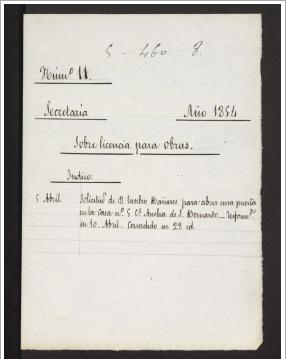 5 - 460 - 8.
Núm.º 11.
Secretaria Año 1854
Sobre licencia para obras.
Indice
5 Abril Solicitud de D. Eusebio Bañares para abrir una puerta
en la Casa n.º 5 C.e Ancha de S. Bernardo - Inform.do
en 10. Abril. Concedido en 23 id